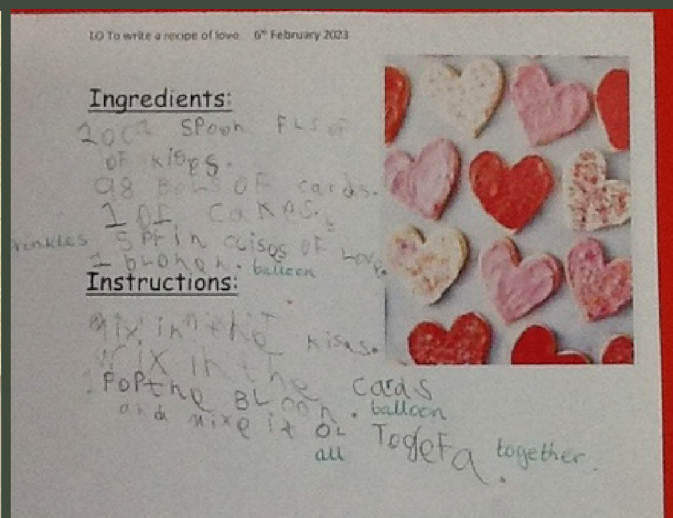 LO To write a recipe of love. 6th February 2023
Ingredients:
spoon FLS of
of kises.
98 BOLS OF cards.
1 of cakes.
rinkles SPrin ccisos OF Love.
1 blonon. balloon
Instructions:
Mix in the kises.
Mix in the cards
PoPthe BLoon. balloon
and mixe it OL Togefa. together.
all